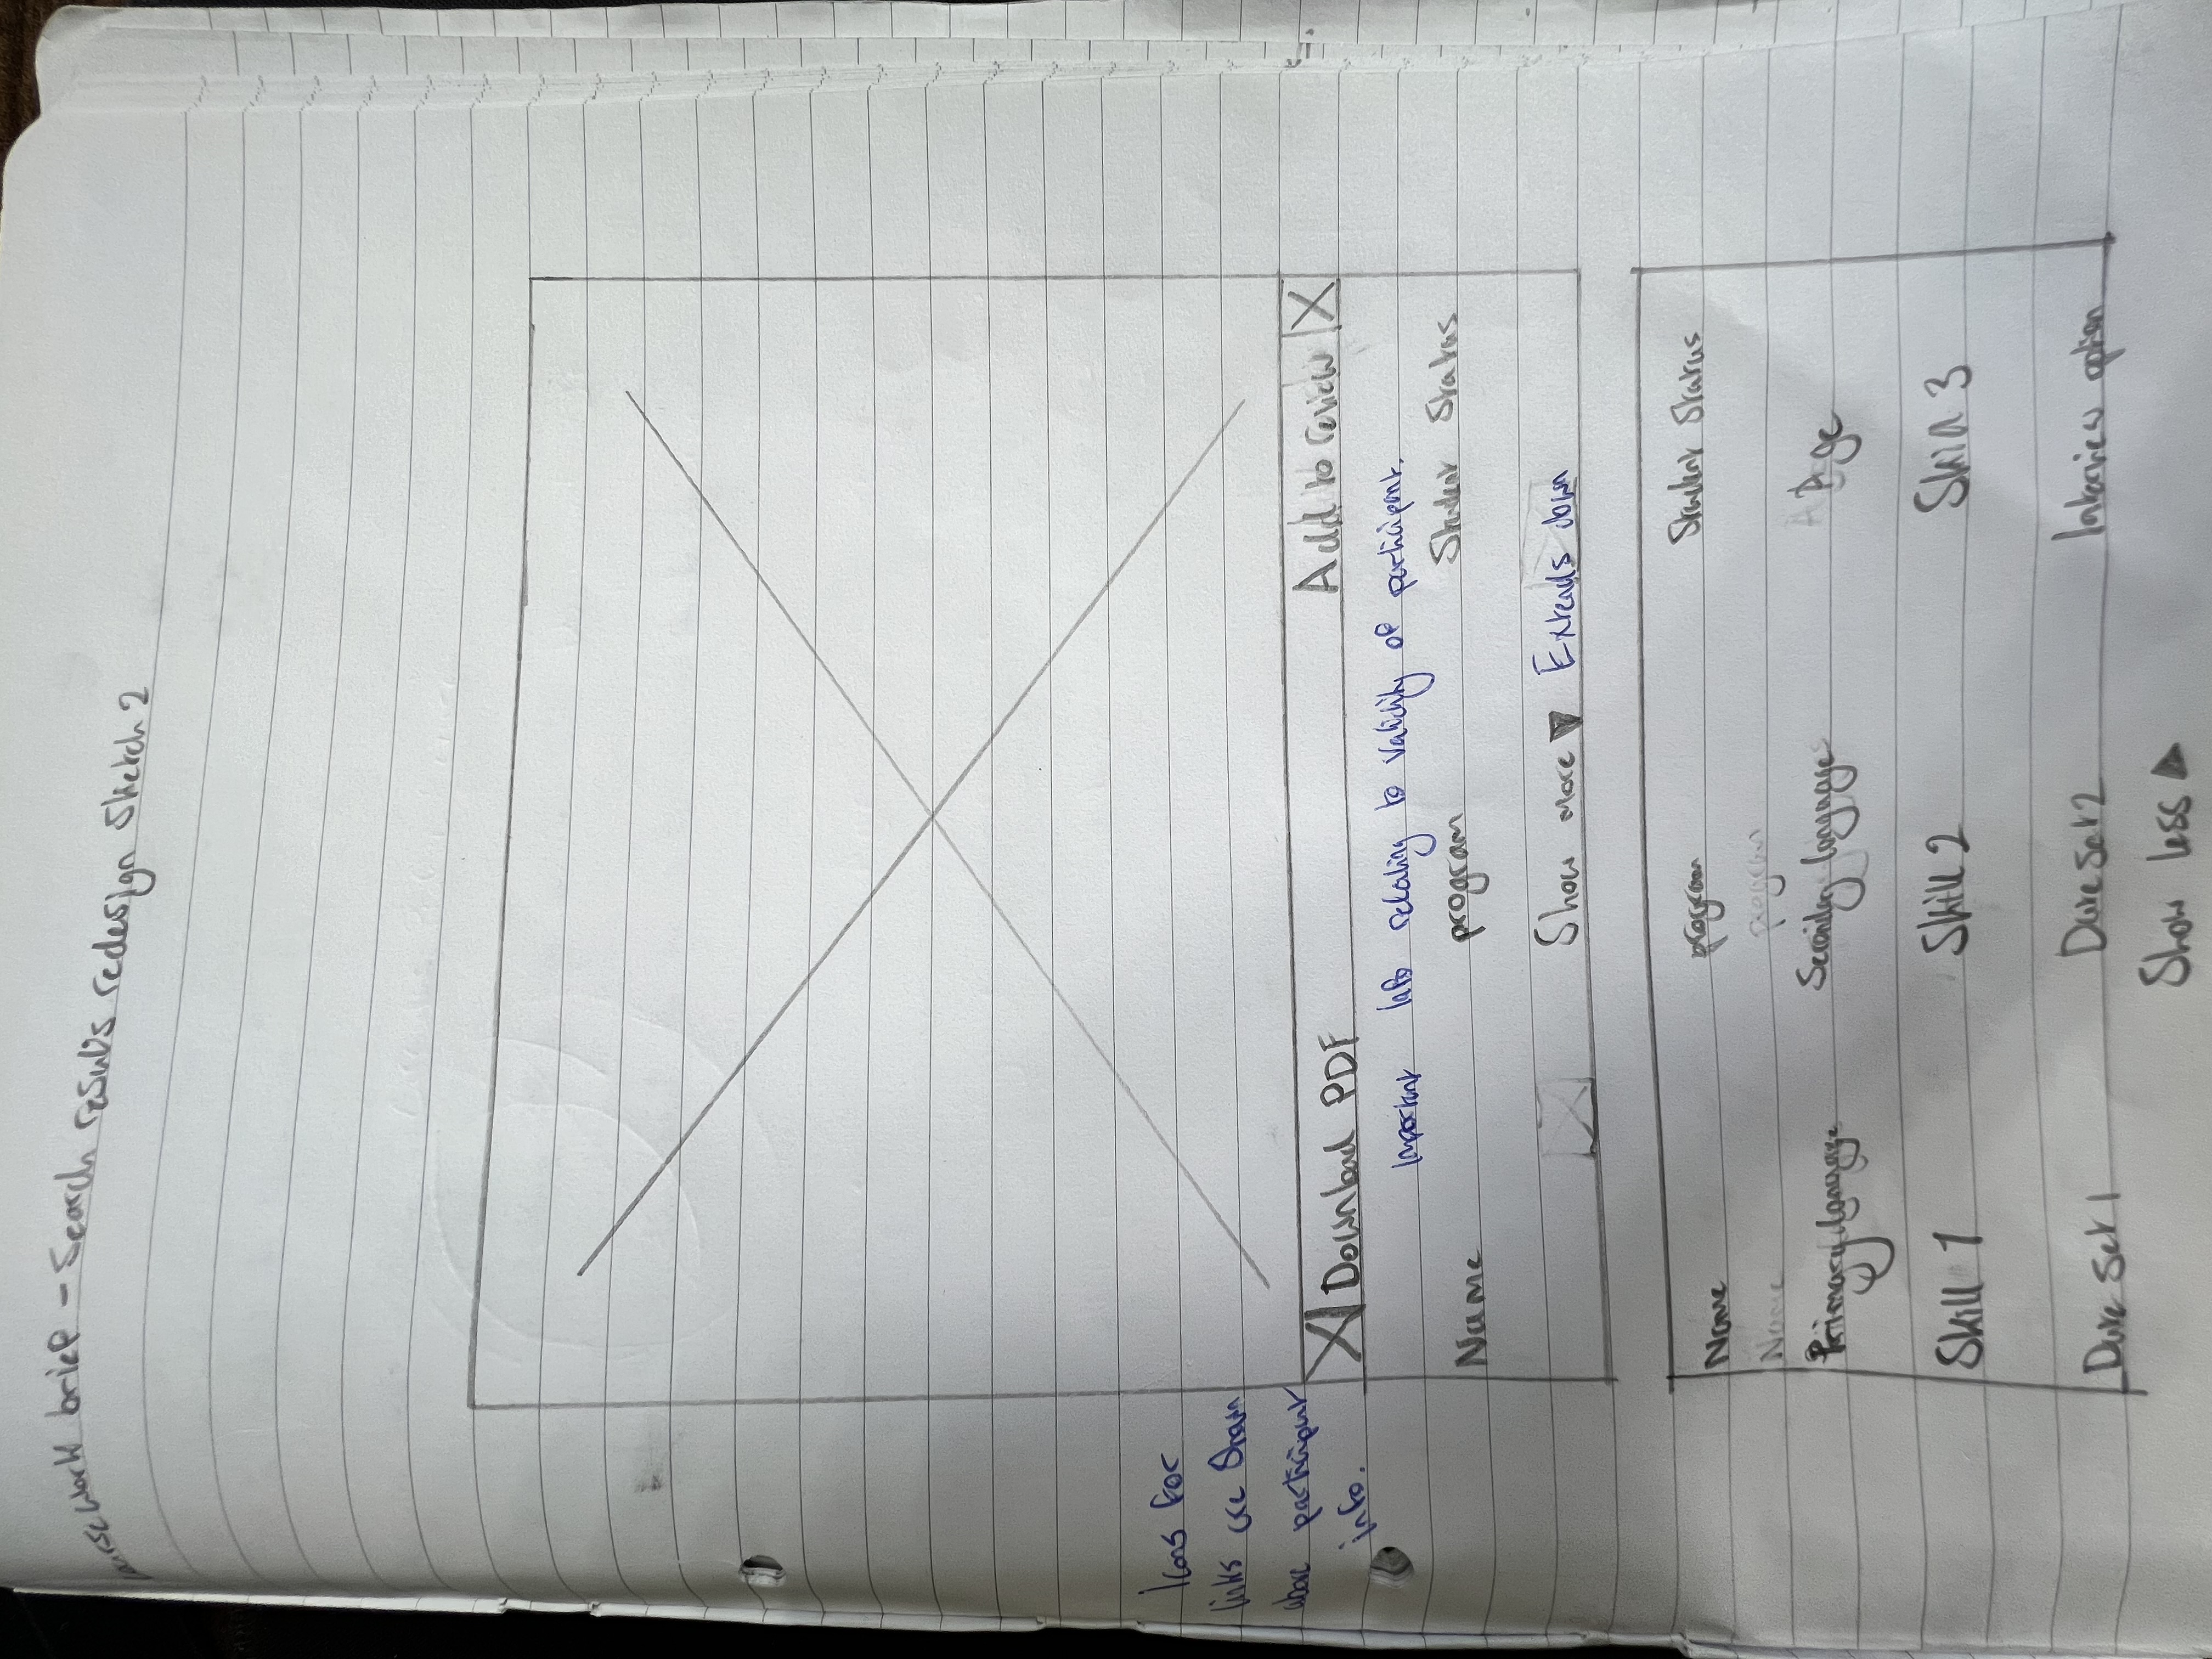 Coursework brief - Search results redesign Sketch 2
Icons for
links are shown
above participant
info.
Download PDF Add to review
Important info relating to validity of participant.
Name program Student Status
Show more ▼ Extends down
Name program Student Status
Name program
Primary langage Secondary language Age
Skill 1 Skill 2 Skill 3
Date Set 1 Date Set 2 Interview option
Show less ▲